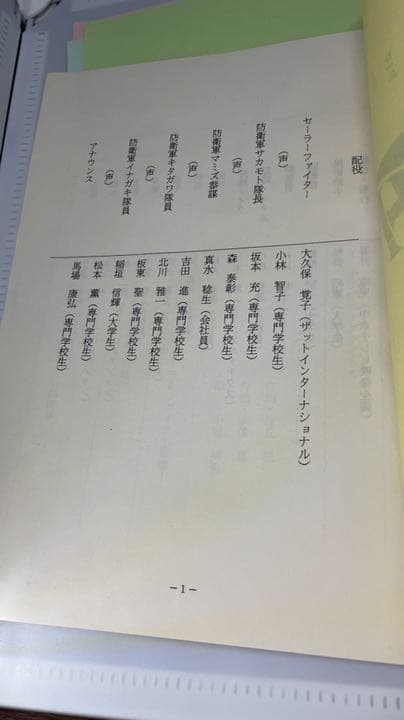 配役
セーラーファイター 大久保 覚子(ザットインターナショナル)
(声) 小林 智子(専門学校生)
防衛軍サカモト隊長 坂本 充(専門学校生)
(声) 森 泰彰(専門学校生)
防衛軍マミズ参謀 真水 稔生(会社員)
(声) 吉田 進(専門学校生)
防衛軍キタガワ隊員 北川 雅一(専門学校生)
(声) 板東 聖(専門学校生)
防衛軍イナガキ隊員 稲垣 信輝(大学生)
(声) 松本 薫(専門学校生)
アナウンス 馬場 康弘(専門学校生)
-1-